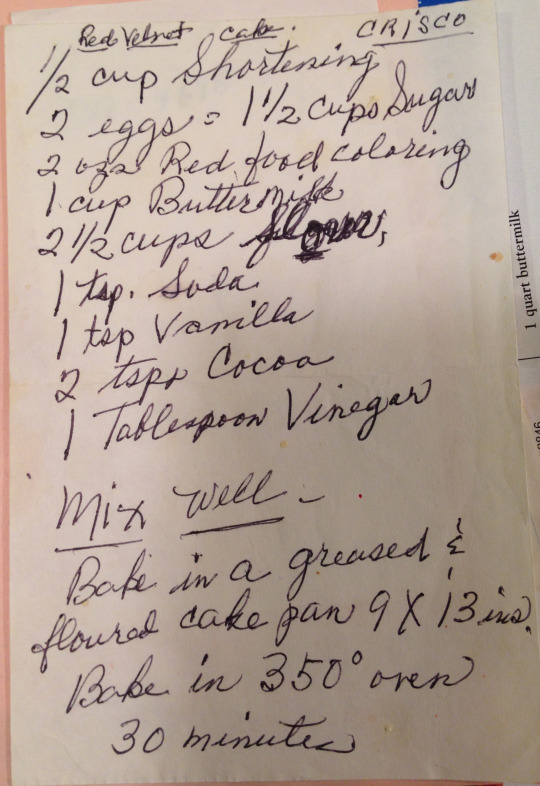 Red Velvet cake. CRISCO
1/2 cup Shortening
2 eggs = 1 1/2 cups Sugar
2 ozs Red food coloring
1 cup Buttermilk
2 1/2 cups flour,
1 tsp. Soda
1 tsp Vanilla
2 tsps Cocoa
1 Tablespoon Vinegar
Mix Well –
Bake in a greased &
floured cake pan 9 X 13 ins.
Bake in 350° oven
30 minutes
1 quart buttermilk